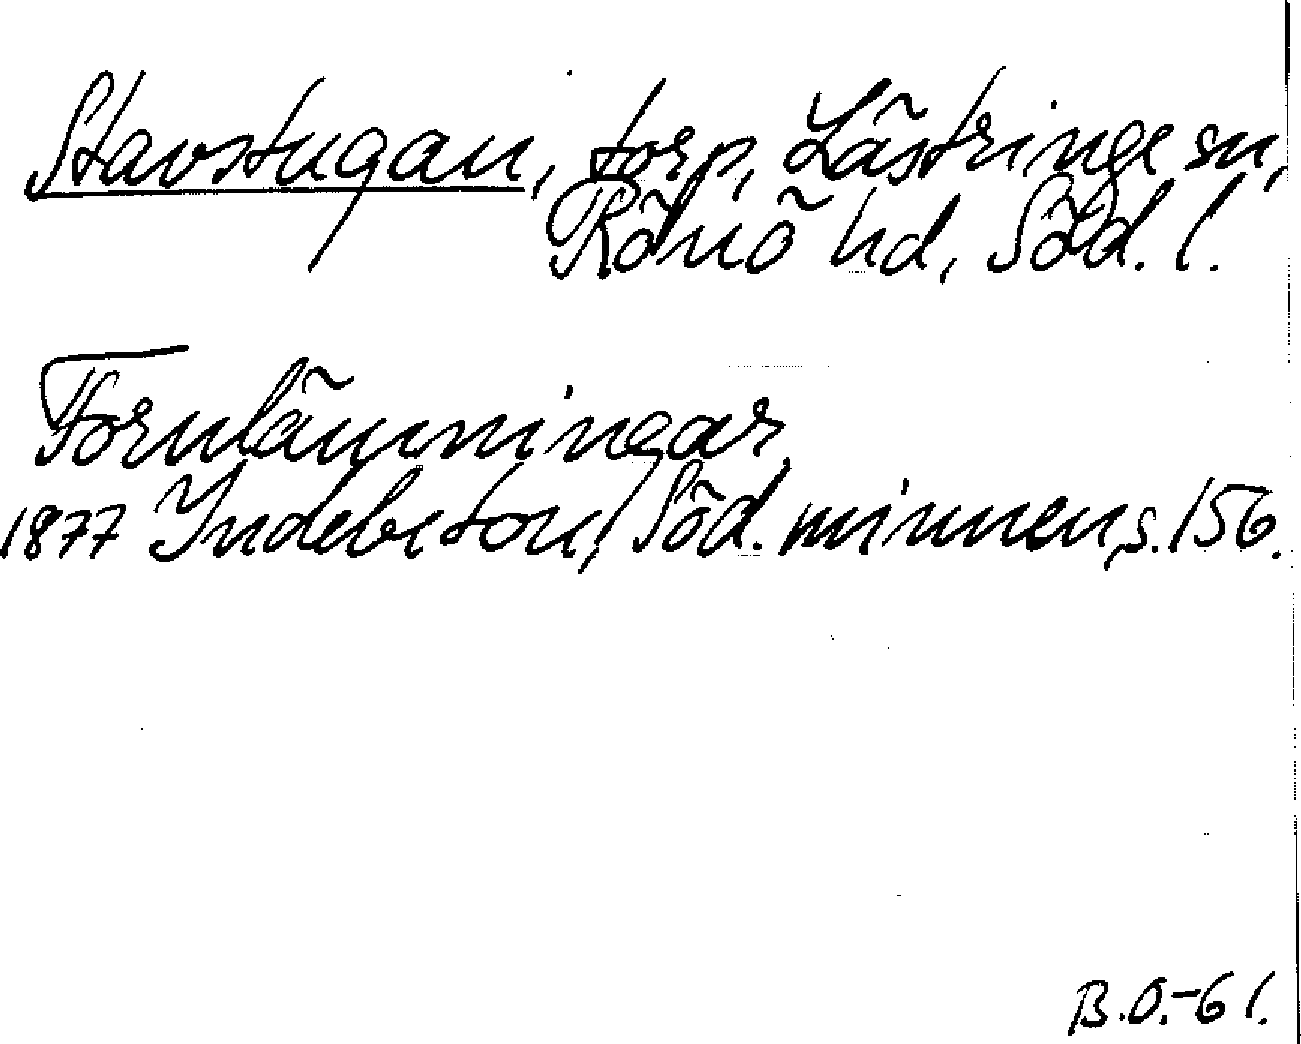 Stavstugan, torp, Lästringe sn,
Rönö hd, Söd. l.
Fornlämningar
1877 Indebetou, Söd. minnen, s. 156.
B.O.-61.